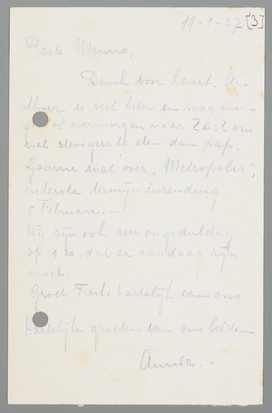 19-1-27 [3]
Beste Menno,
Dank voor kaart.
is veel beter en mag mor-
gen of overmorgen naar om
wat stevigers te eten dan pap.
Gaarne wat over "Metropolis";
uiterste termijn inzending
5 Februari. —
Wij zijn ook zeer ongeduldig
op dat er vandaag zijn
moet.
Groet Frits hartelijk van ons
Hartelijke groeten van ons beiden
Annie.